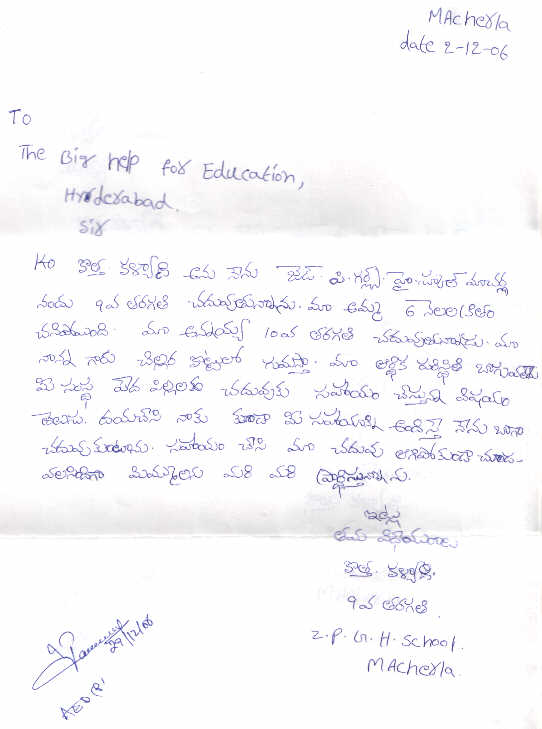 MAcherla
date 2-12-06
To
The Big help for Education,
Hyderabad.
Sir
కొత్త కళ్యాణి అను నేను జెడ్. పి. గర్ల్స్ హై. స్కూల్ మాచర్ల
నందు 9వ తరగతి చదువుచున్నాను. మా అమ్మ 6 నెలల క్రితం
చనిపోయింది. మా అన్నయ్య 10వ తరగతి చదువుచున్నాడు. మా
నాన్న గారు చిల్లర కొట్టులో గుమస్తా. మా ఆర్థిక పరిస్థితి బాగులేదు
మీ సంస్థ పేద పిల్లలకు చదువుకు సహాయం చేస్తున్న విషయం
తెలిసి. దయచేసి నాకు కూడా మీ సహాయాన్ని అందిస్తే నేను బాగా
చదువుకుంటాను. సహాయం చేసి మా చదువు ఆగిపోకుండా చూడ-
వలసిందిగా మిమ్మలను మరి మరి ప్రార్థిస్తున్నాను.
ఇట్లు
తమ విధేయురాలు
కొత్త. కళ్యాణి.
9వ తరగతి.
Z.P.G.H. School.
MAcherla.
29/12/06